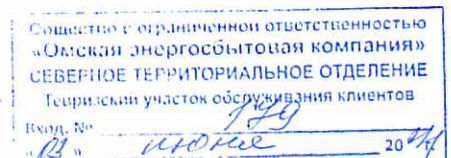 Общество с ограниченной ответственностью
«Омская энергосбытовая компания»
СЕВЕРНОЕ ТЕРРИТОРИАЛЬНОЕ ОТДЕЛЕНИЕ
Тевризский участок обслуживания клиентов
Вход. № 179
«03» июня 20